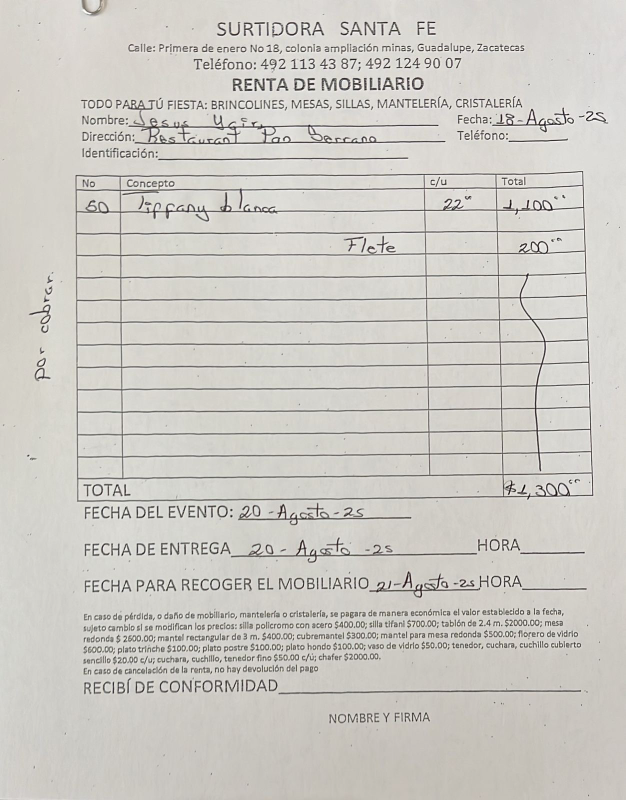 SURTIDORA SANTA FE
Calle: Primera de enero No 18, colonia ampliación minas, Guadalupe, Zacatecas
Teléfono: 492 113 43 87; 492 124 90 07
RENTA DE MOBILIARIO
TODO PARA TÚ FIESTA: BRINCOLINES, MESAS, SILLAS, MANTELERÍA, CRISTALERÍA
Nombre: Jesus Yair Fecha: 18-Agosto-25
Dirección: Restaurant Pan Serrano Teléfono:
Identificación:
No Concepto c/u Total
50 Tiffany blanca 22 1,100
Flete 200
por cobrar
TOTAL $1,300
FECHA DEL EVENTO: 20-Agosto-25
FECHA DE ENTREGA 20-Agosto-25 HORA
FECHA PARA RECOGER EL MOBILIARIO 21-Agosto-25 HORA
En caso de pérdida, o daño de mobiliario, mantelería o cristalería, se pagara de manera económica el valor establecido a la fecha,
sujeto cambio si se modifican los precios: silla policromo con acero $400.00; silla tifani $700.00; tablón de 2.4 m. $2000.00; mesa
redonda $ 2600.00; mantel rectangular de 3 m. $400.00; cubremantel $300.00; mantel para mesa redonda $500.00; florero de vidrio
$600.00; plato trinche $100.00; plato postre $100.00; plato hondo $100.00; vaso de vidrio $50.00; tenedor, cuchara, cuchillo cubierto
sencillo $20.00 c/u; cuchara, cuchillo, tenedor fino $50.00 c/ú; chafer $2000.00.
En caso de cancelación de la renta, no hay devolución del pago
RECIBÍ DE CONFORMIDAD
NOMBRE Y FIRMA